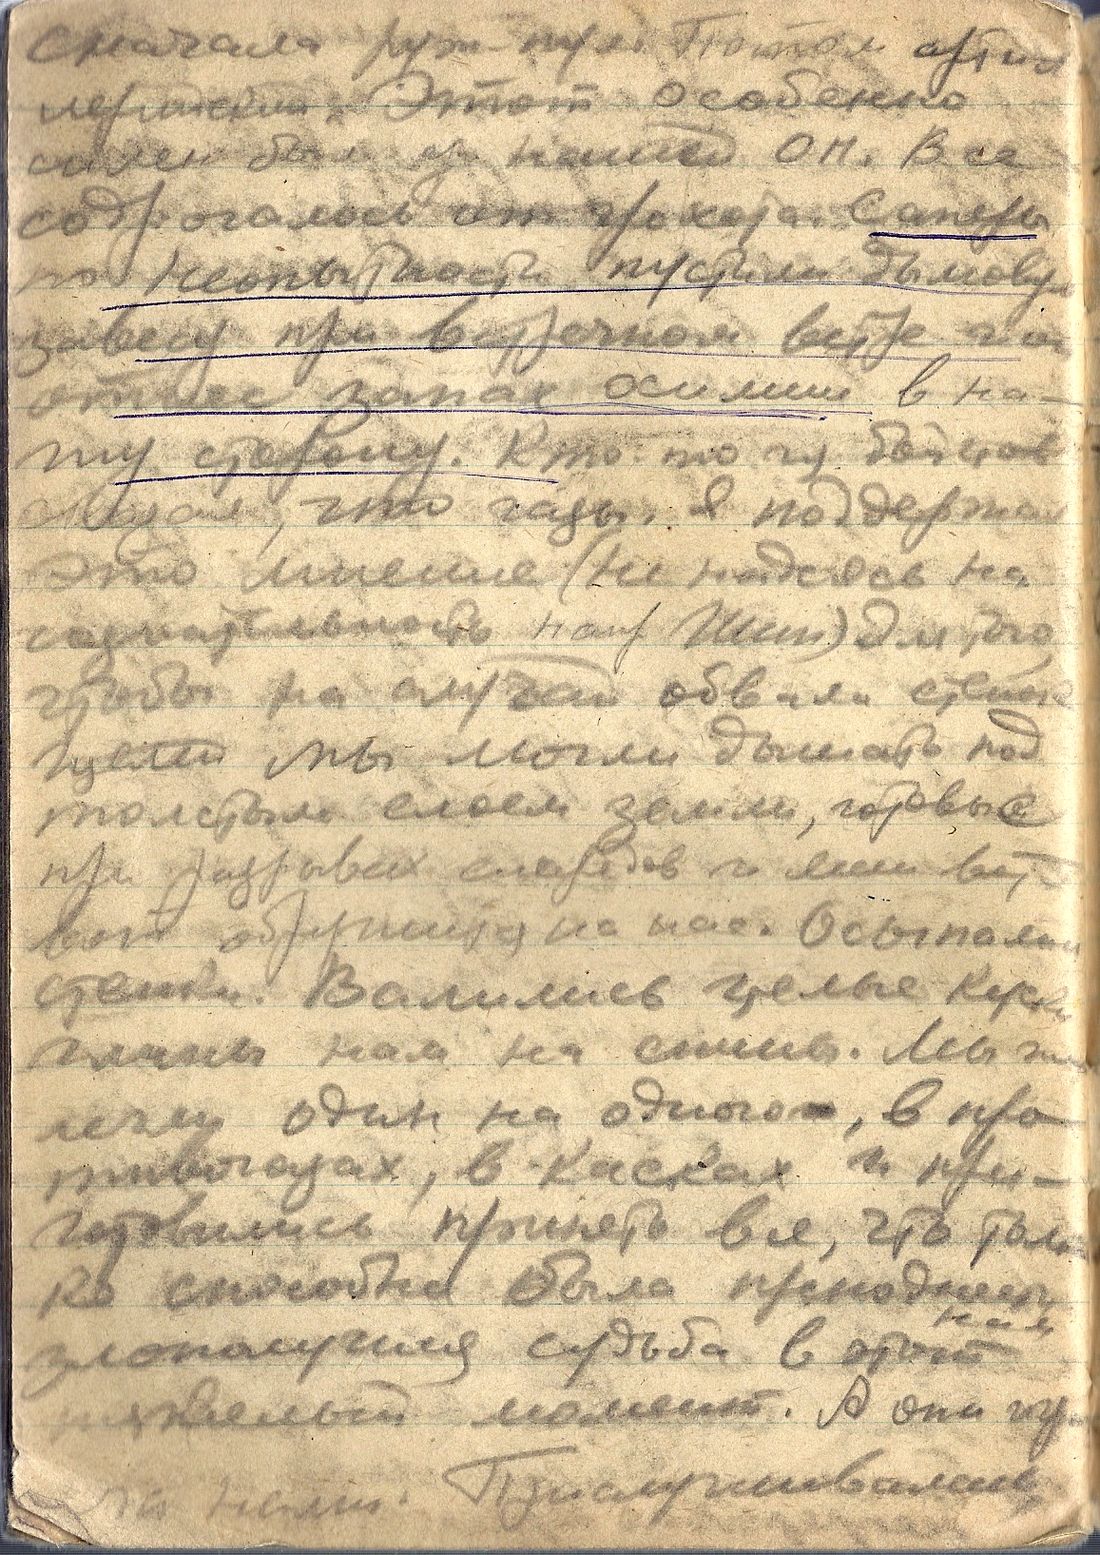 сначала руж-пул. Потом артил
лерийский. Этот особенно
силен был из нашей ОП. Все
содрогалось от грохота. Саперы
по неопытности пустили дымовую
завесу при встречном ветре
отнес запах в на-
шу сторону. Кто то из бойцов
сказал, что газы. Я поддержал
это мнение (не надеясь на
сознательность) для того,
чтобы на случай обвала стенок
щели мы могли дышать под
толстым слоем земли, готовые
при разрывах снарядов и мин вот-
вот обрушиться на нас. Осыпались
стенки. Валились целые куски
глины нам на спины. Мы
легли один на одного, в про-
тивогазах, в касках и при-
готовились принять все, что толь
ко способна была преподнести
нам
злополучная судьба в этот
тяжелый момент. А они
за ними. Прислушивались